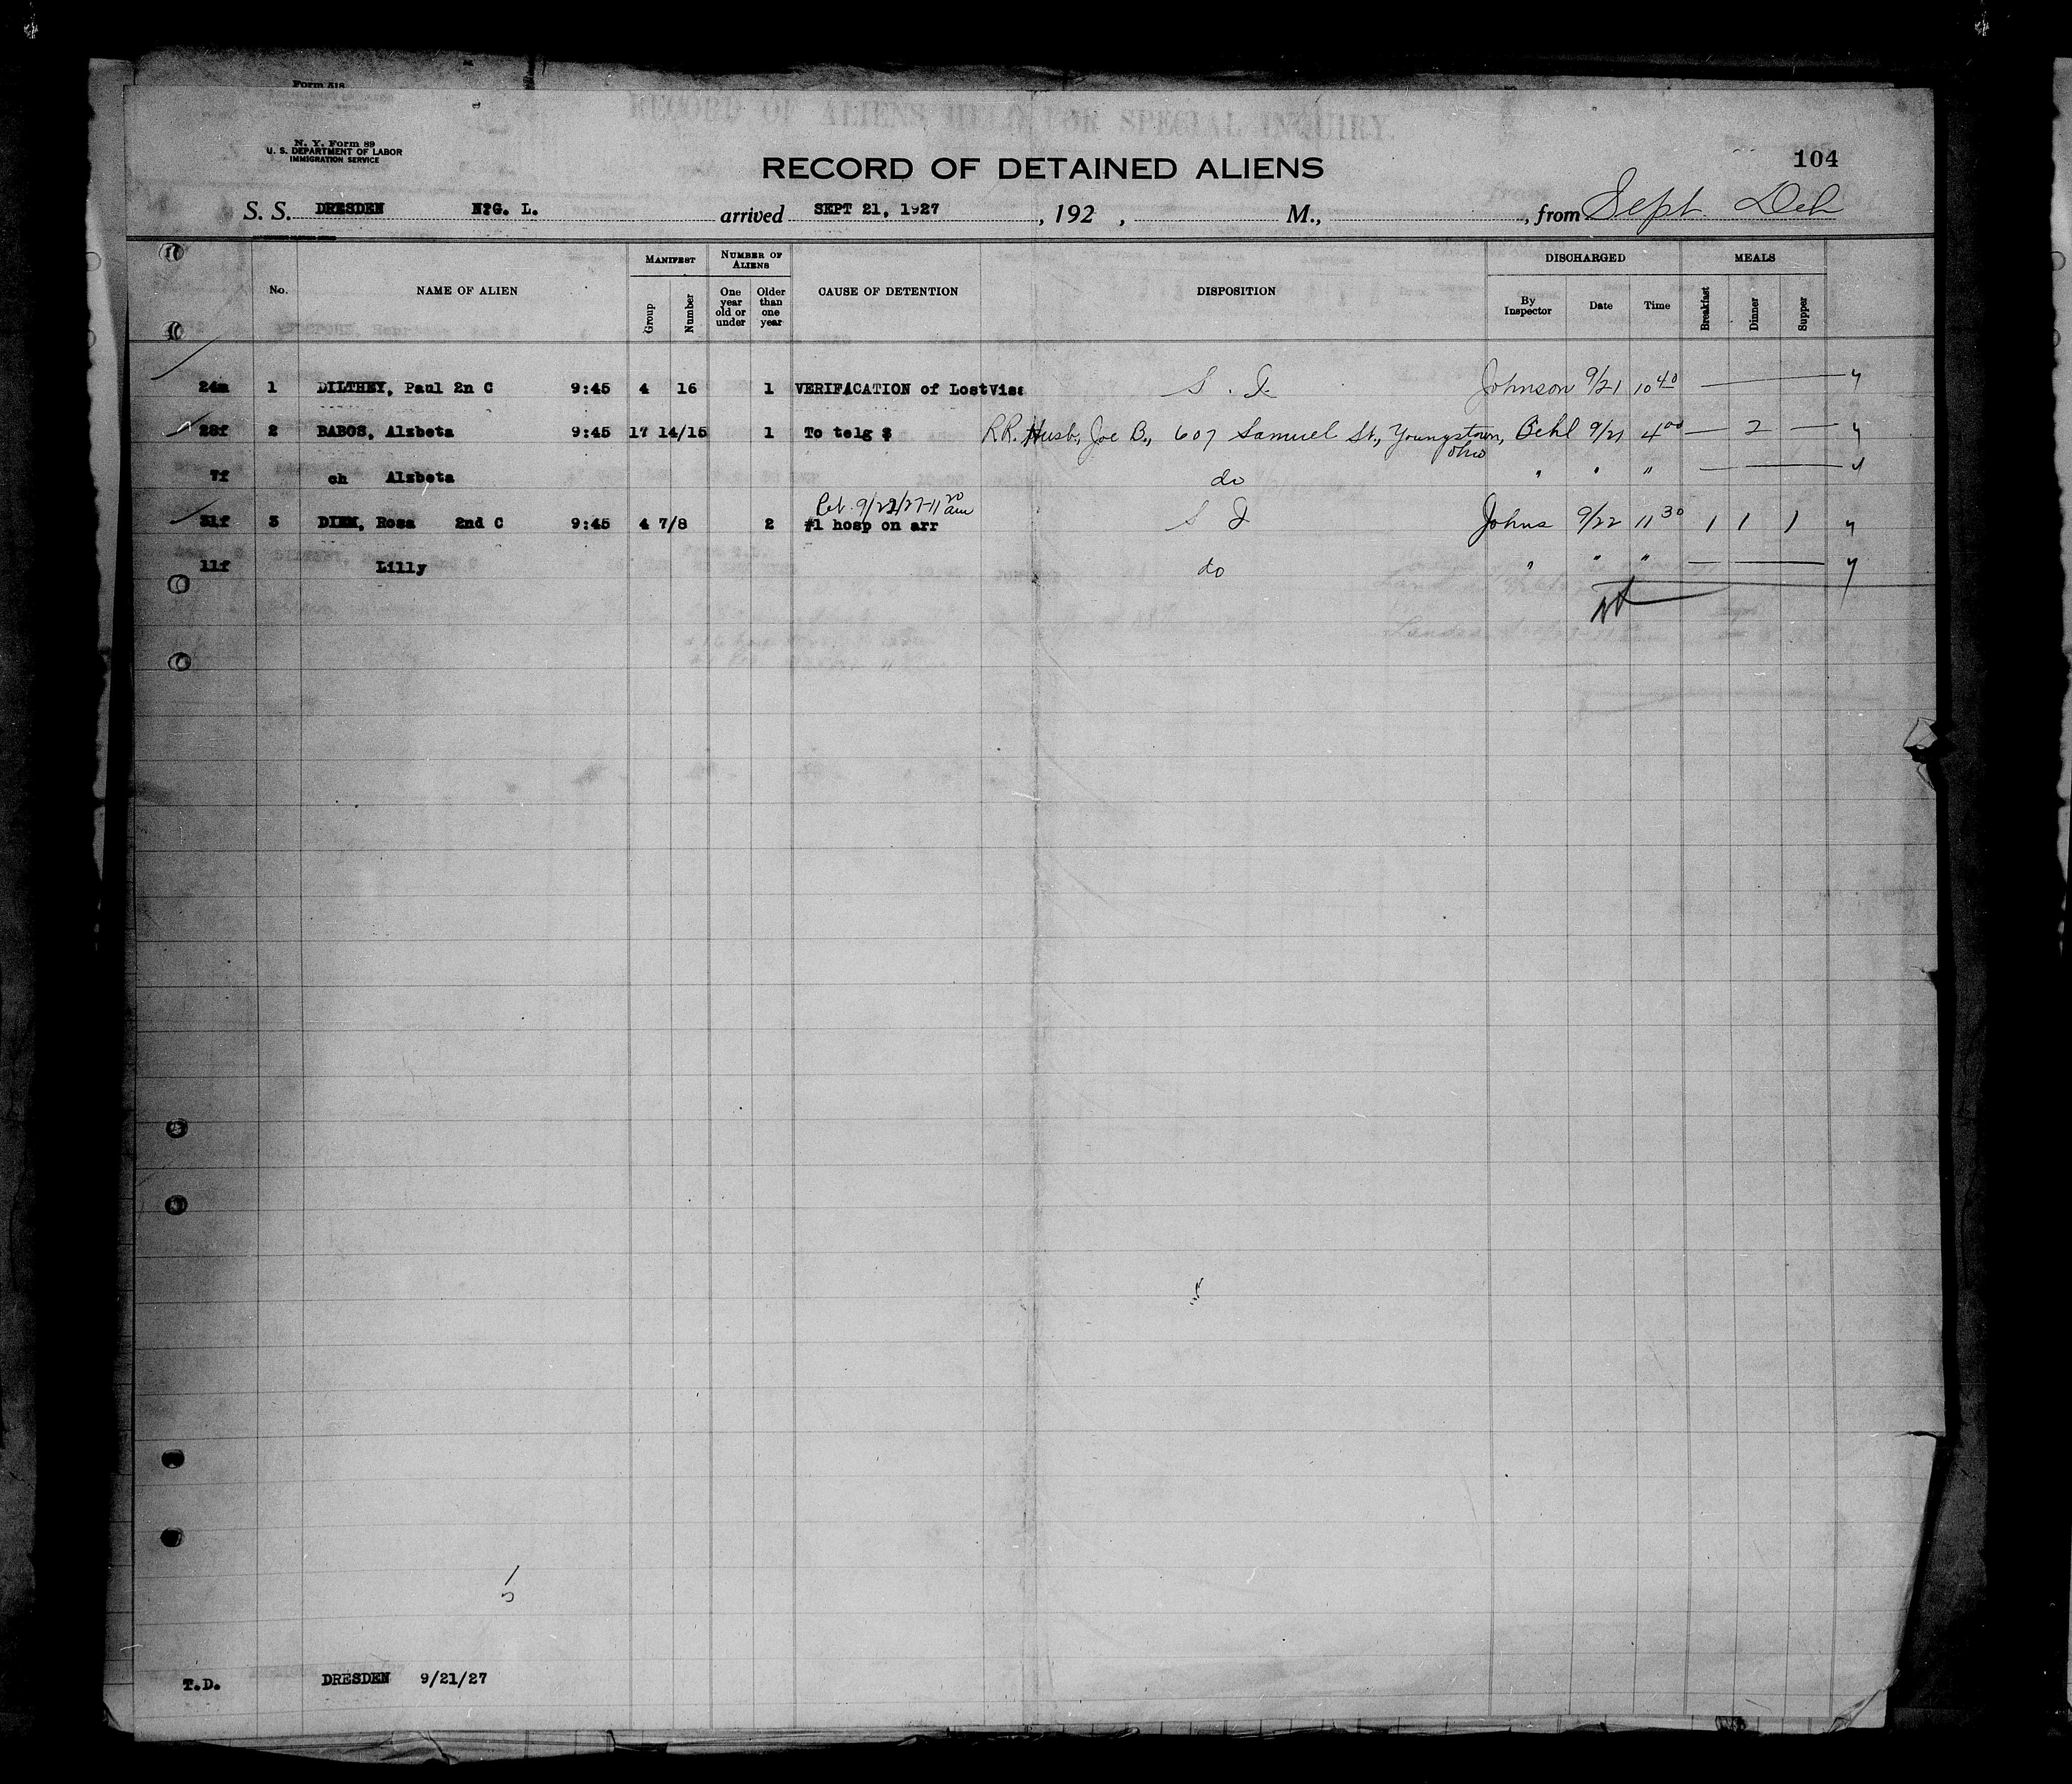 Form 518
RECORD OF ALIENS HELD FOR SPECIAL INQUIRY.
N. Y. Form 89
U. S. DEPARTMENT OF LABOR
IMMIGRATION SERVICE
RECORD OF DETAINED ALIENS
104
S. S. DRESDEN N.G. L. arrived SEPT 21, 1927, 192 , M., , from Sept.
No. NAME OF ALIEN MANIFEST Group Number NUMBER OF ALIENS One year old or under Older than one year CAUSE OF DETENTION DISPOSITION DISCHARGED By Inspector Date Time MEALS Breakfast Dinner Supper
24m 1 DILTHEY, Paul 2n C 9:45 4 16 1 VERIFACATION of LostVisa S. I. Johnson 9/21 10 40 —
28f 2 BABOS, Alzbeta 9:45 17 14/15 1 To telg $ RR. Husb, Joe B., 607 Samuel St., Youngstown, Ohio 9/21 4 00 — 2 —
7f ch Alzbeta do " " " —
9/22/27-11 20 am
31f 3 DIEM, Rosa 2nd C 9:45 4 7/8 2 #1 hosp on arr S I Johns 9/22 11 30 1 1 1
11f Lilly do " " " —
T.D. DRESDEN 9/21/27